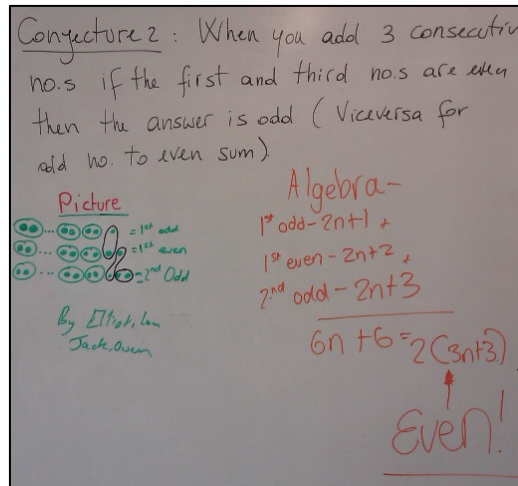 Conjecture 2 : When you add 3 consecutiv
no.s if the first and third no.s are even
then the answer is odd ( Viceversa for
odd no. to even sum)
Picture
= 1st odd
= 1st even
= 2nd Odd
By Elliot,
Jack, Owen
Algebra-
1st odd - 2n+1 +
1st even - 2n+2 +
2nd odd - 2n+3
6n+6=2(3n+3)
Even!